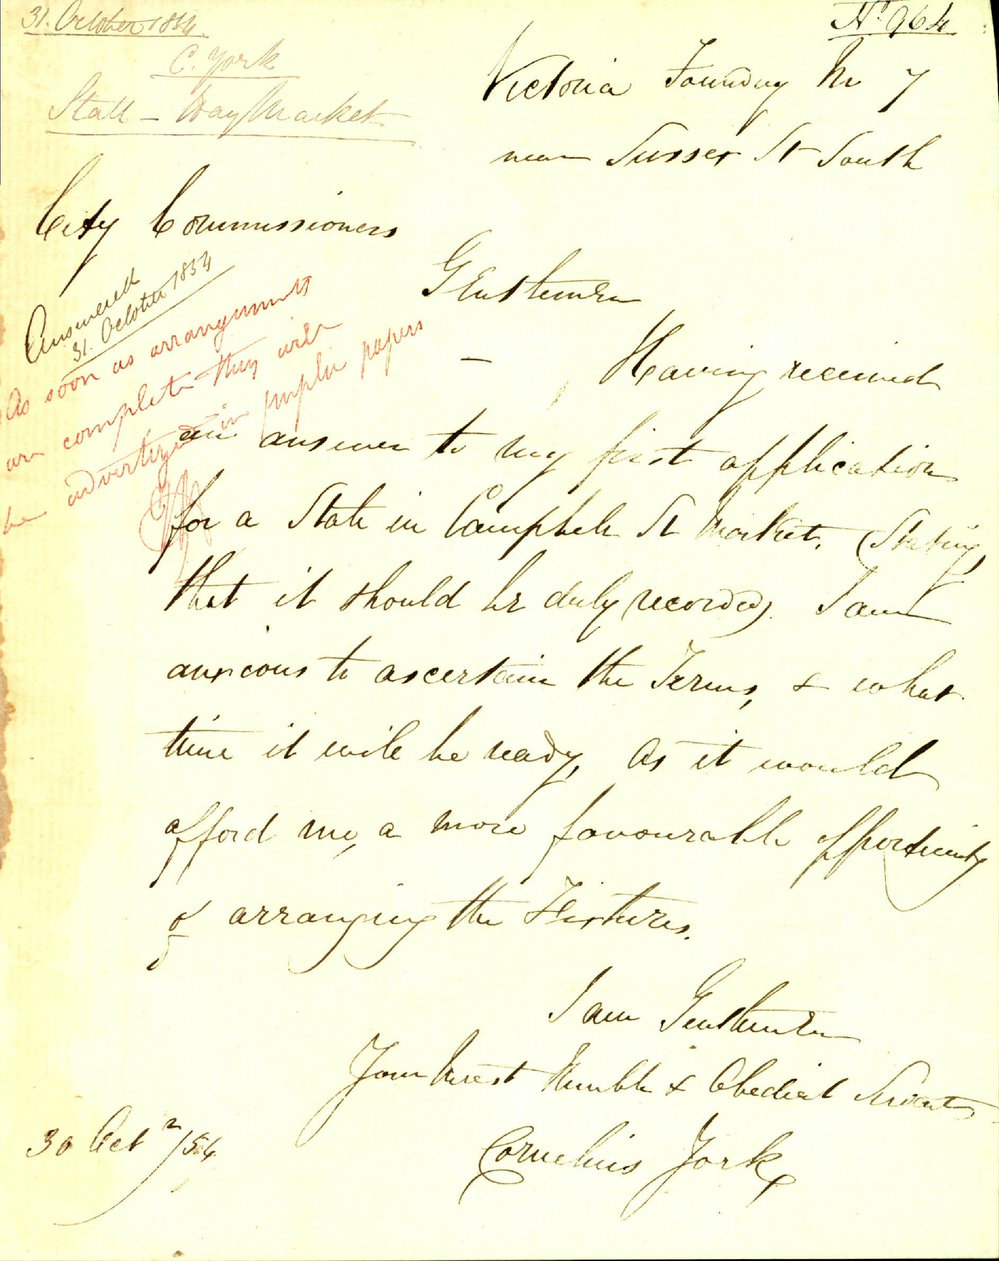 31. October 1854
No. 964
C. York
Stall - Haymarket
Victoria Foundry No 7
near Sussex St South
City Commissioners
Answered
31. October 1854
As soon as arrangements
are complete they will
be advertized in public papers
Gentlemen
- Having received
an answer to my first application
for a Stall in Campbell St Market. (Stating,
that it should be duly recorded). I am
anxious to ascertain the Terms, & what
time it will be ready, as it would
afford me, a more favourable opportunity
of arranging the Fixtures.
I am Gentlemen
Your Most Humble & Obedient Servant
Cornelius York
30 Oct /54